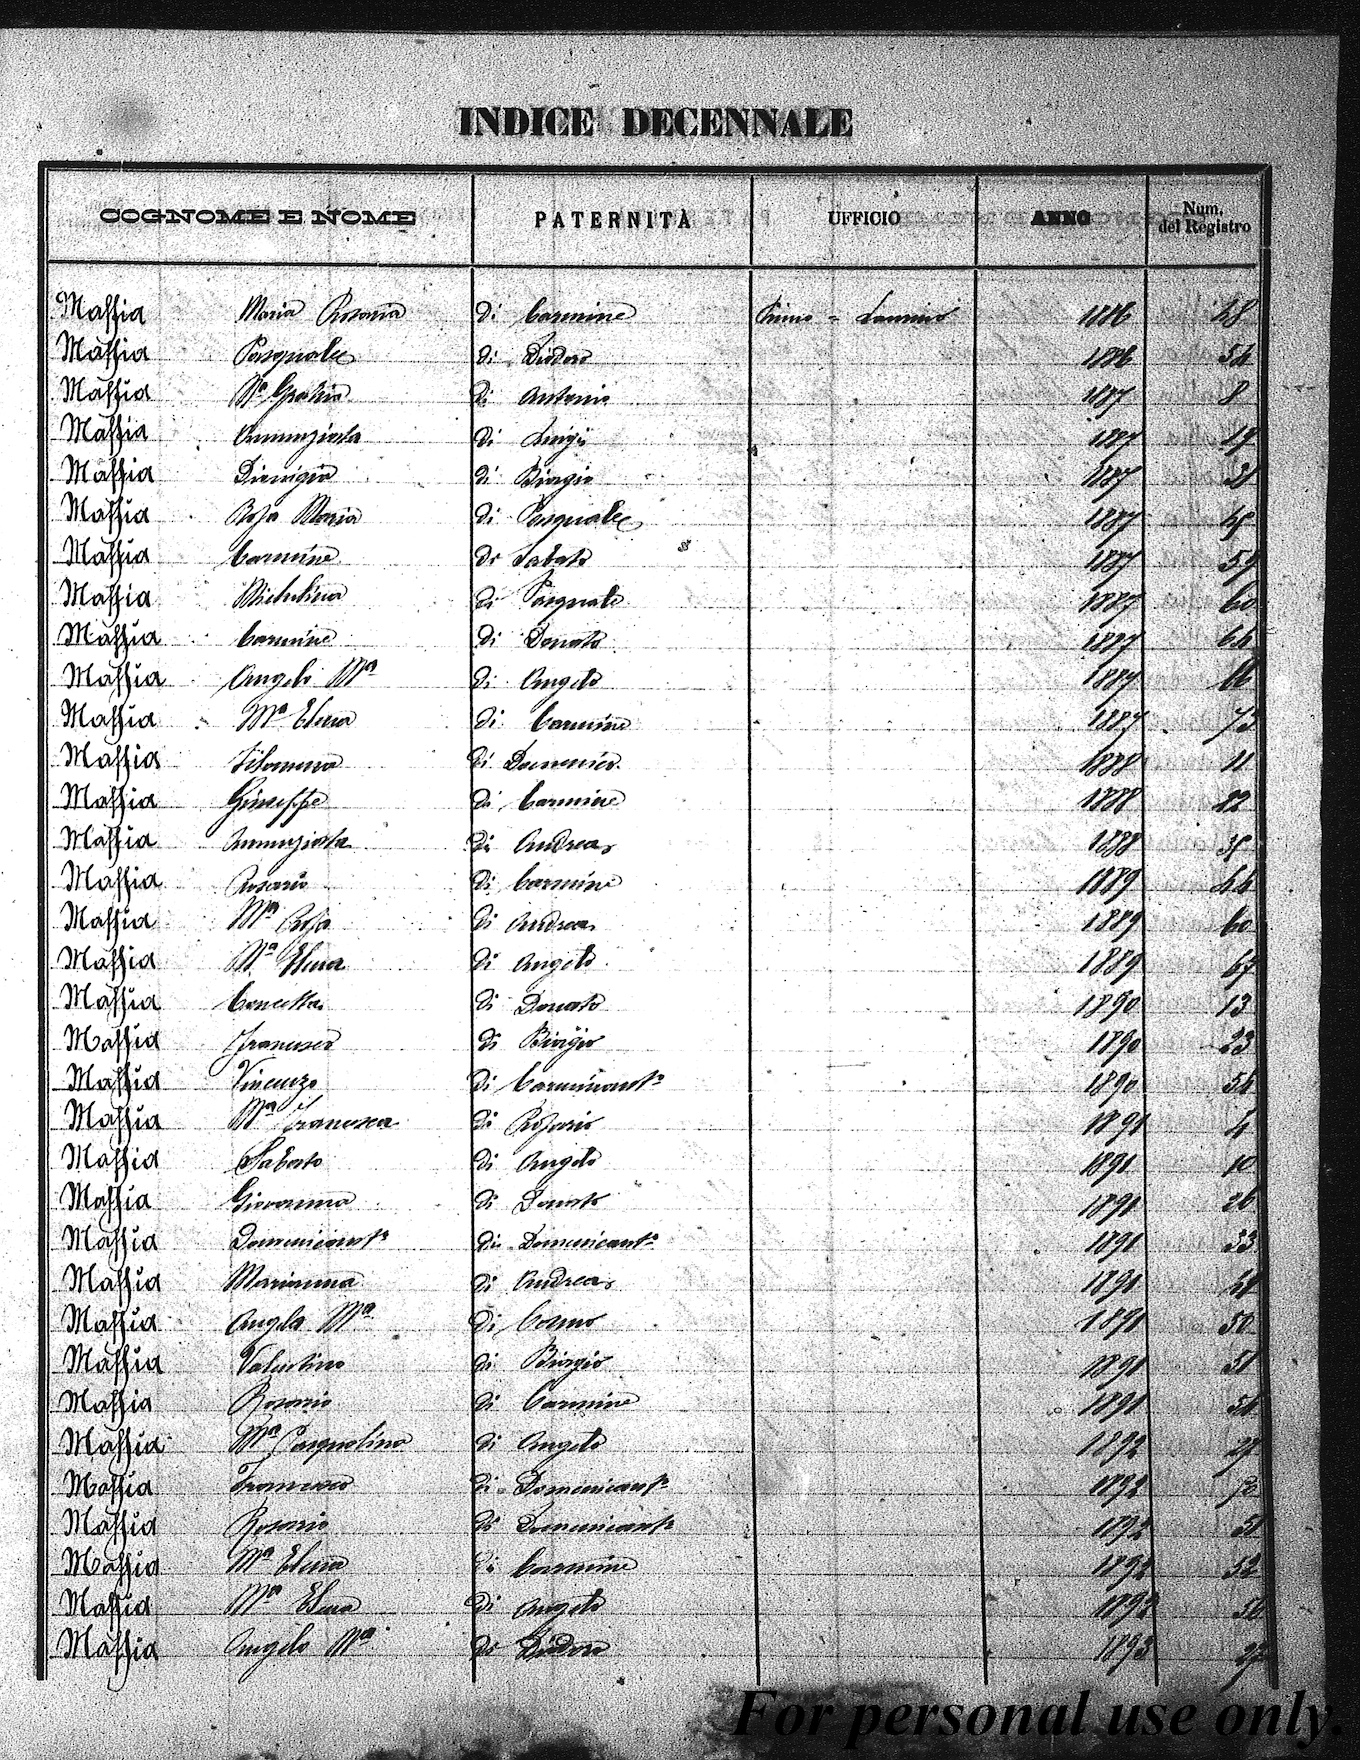 INDICE DECENNALE
COGNOME E NOME PATERNITÀ UFFICIO ANNO Num. del Registro
Massia Maria Rosaria di Carmine Primo = 1886 48
Massia Pasquale di Diodoro 1886 54
Massia Mª Grazia di Antonio 1887 8
Massia Annunziata di Luigi 1887 19
Massia Dionigia di Biagio 1887
Massia Rosa Maria di Pasquale 1887 45
Massia Carmine di Sabato 1887 59
Massia Michelina di Pasquale 1887 60
Massia Carmine di Donato 1887 64
Massia Angelo Mª di Angelo 1887 66
Massia Mª Elena di Carmine 1887
Massia Filomena di Domenico 1888 11
Massia Giuseppe di Carmine 1888 22
Massia Annunziata di Andrea 1888 35
Massia Rosario di Carmine 1889 44
Massia Mª Rosa di Andrea 1889 60
Massia Mª Elena di Angelo 1889 67
Massia Concetta di Donato 1890 13
Massia Francesco di Biagio 1890 23
Massia Vincenzo di Carminantº 1890 54
Massia Mª Francesca di Rosario 1891 4
Massia Sabato di Angelo 1891 10
Massia Giovanna di Donato 1891 26
Massia Domenicantº di Domenicantº 1891 33
Massia Marianna di Andrea 1891 41
Massia Angela Mª di Cosmo 1891 50
Massia Valentino di Biagio 1891 51
Massia Rosario di Carmine 1891 54
Massia Mª Pasqualina di Angelo 1892 27
Massia Francesco di Domenicantº 1892
Massia Rosario di Domenicantº 1892 51
Massia Mª Elena di Carmine 1892 52
Massia Mª Elena di Angelo 1892 56
Massia Angelo Mª di Diodoro 1893 27
For personal use only.